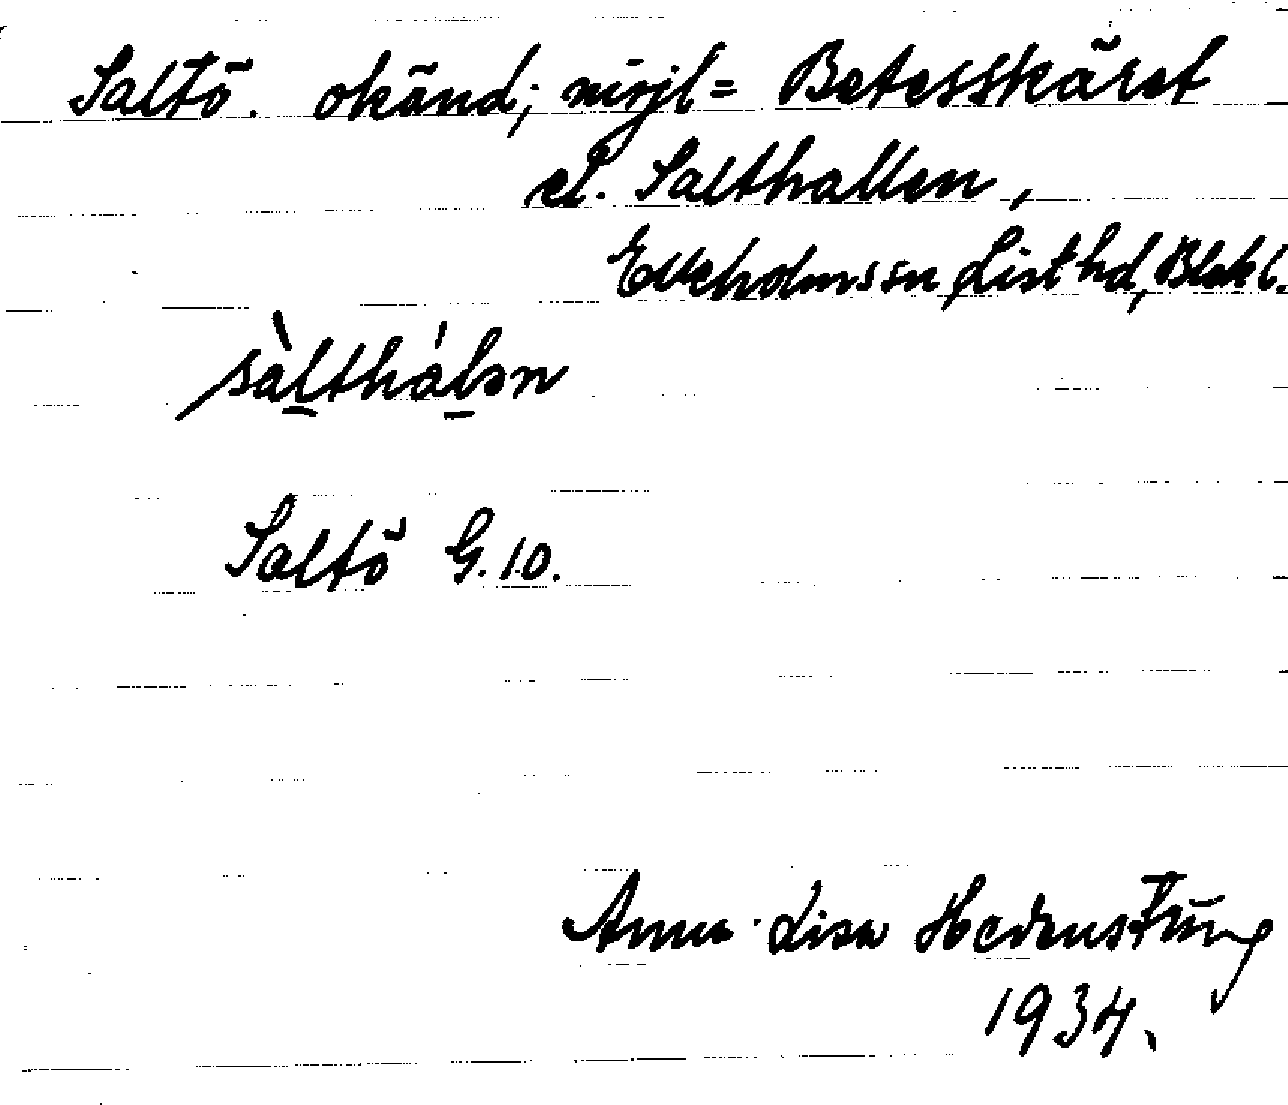 Saltö. okänd; möjl = Betesskäret
el. Salthallen,
Elleholms sn, List hd, Blek l.
sàltháḷən
Saltö G.10.
Anna-Lisa Hedenstring
1934.